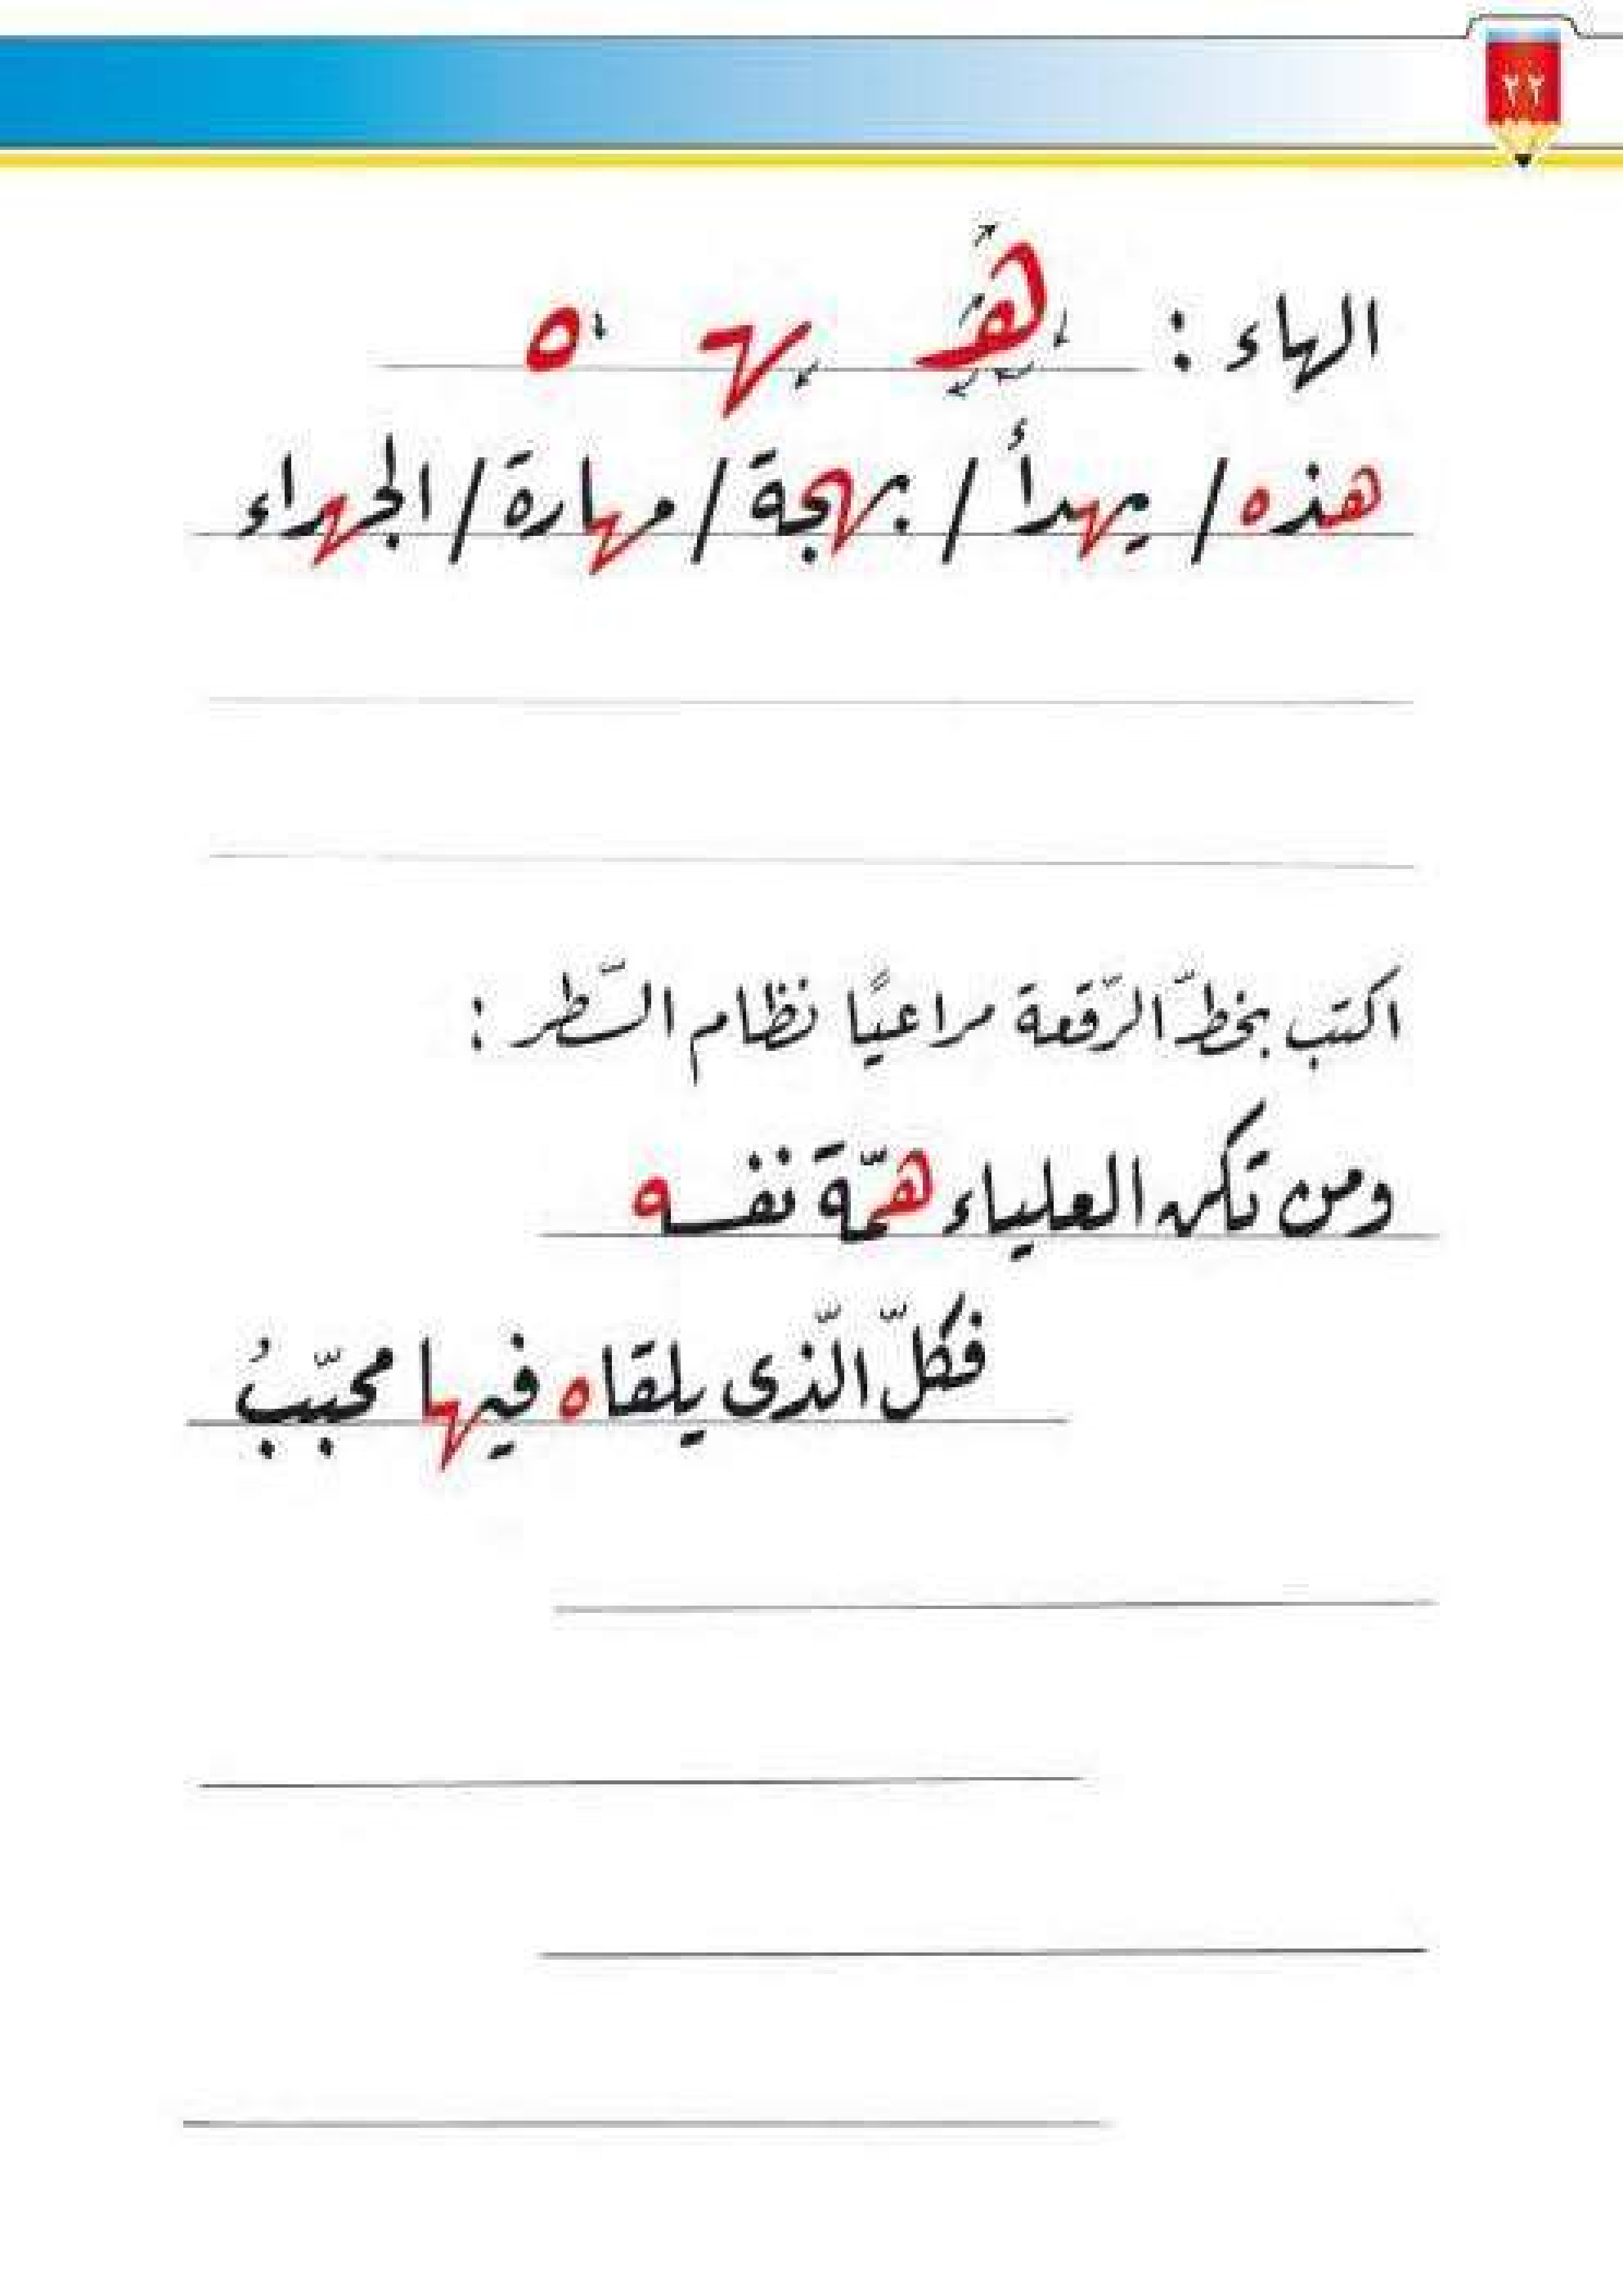 ٢٢
الهاء : هـ ـهـ ه
هذه / يهدأ / بهجة / مهارة / الجهراء
اكتب بخطّ الرّقعة مراعيًا نظام السّطر :
ومن تكن العلياء همّة نفسه
فكلّ الّذى يلقاه فيها محبّبُ